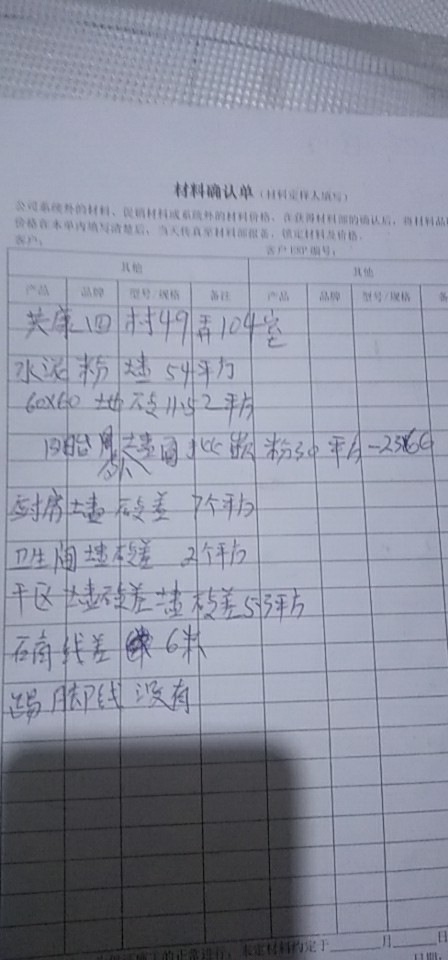 材料确认单（材料定样人填写）
公司系统外的材料、促销材料或系统外的材料价格，在获得材料部的确认后，将材料品
价格在本单内填写清楚后，当天传真至材料部报备，锁定材料及价格。
客户： 客户ERP编号：
其他 其他
产品 品牌 型号/规格 备注 产品 品牌 型号/规格 备
共康四村49弄104室
水泥粉墙54平方
60X60 地砖11.52平方
墙面 粉30平方
厨房墙砖差 7个平方
卫生间墙砖差 2个平方
干区墙砖差墙砖差5.3平方
石膏线差 6米
踢脚线没有
的正常进行，本定材料约定于 月 日
日期：